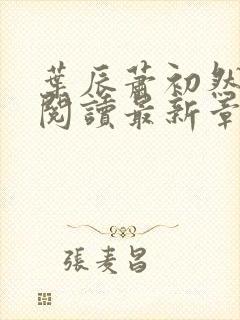 葉辰蕭初然
閱讀最新章
張麦昌